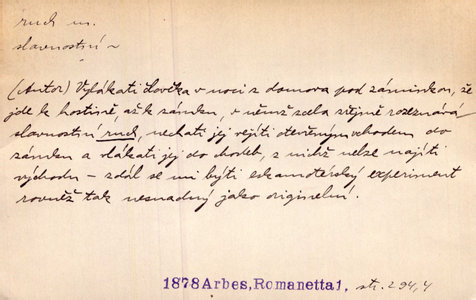 ruch m.
slavnostní ~
(Autor) Vylákati člověka v noci z domova pod záminkou, že
jde k hostině, až k zámku, v němž zcela zřejmě rozeznává
slavnostní ruch, nechati jej vejíti otevřeným vchodem do
zámku a vlákati jej do chodeb, z nichž nelze najíti
východu – zdál se mi býti eskamotérský experiment
rovněž tak nesnadný jako originelní.
1878 Arbes, Romanetta 1, str. 294,4